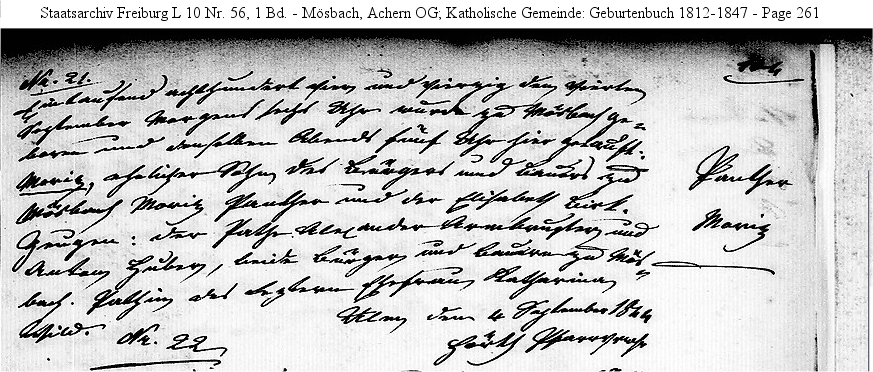 Staatsarchiv Freiburg L 10 Nr. 56, 1 Bd. - Mösbach, Achern OG; Katholische Gemeinde: Geburtenbuch 1812-1847 - Page 261
No. 21.
Eintausend achthundert vier und vierzig den vierten
September Morgens sechs Uhr wurde zu Mösbach ge-
boren und denselben Abends fünf Uhr hier getauft:
Moritz, ehelicher Sohn des Bürgers und Bauers zu
Mösbach Moritz Panther und der Elisabeth
Zeugen: der Pathe Alexander Armbruster und
Anton Huber, beide Bürger und Bauern zu Mös-
bach. Pathin des Letztern Ehefrau Katharina
Wild.
Ulm den 4 September 1844
Pfarrverw
No. 22
Panther
Moritz